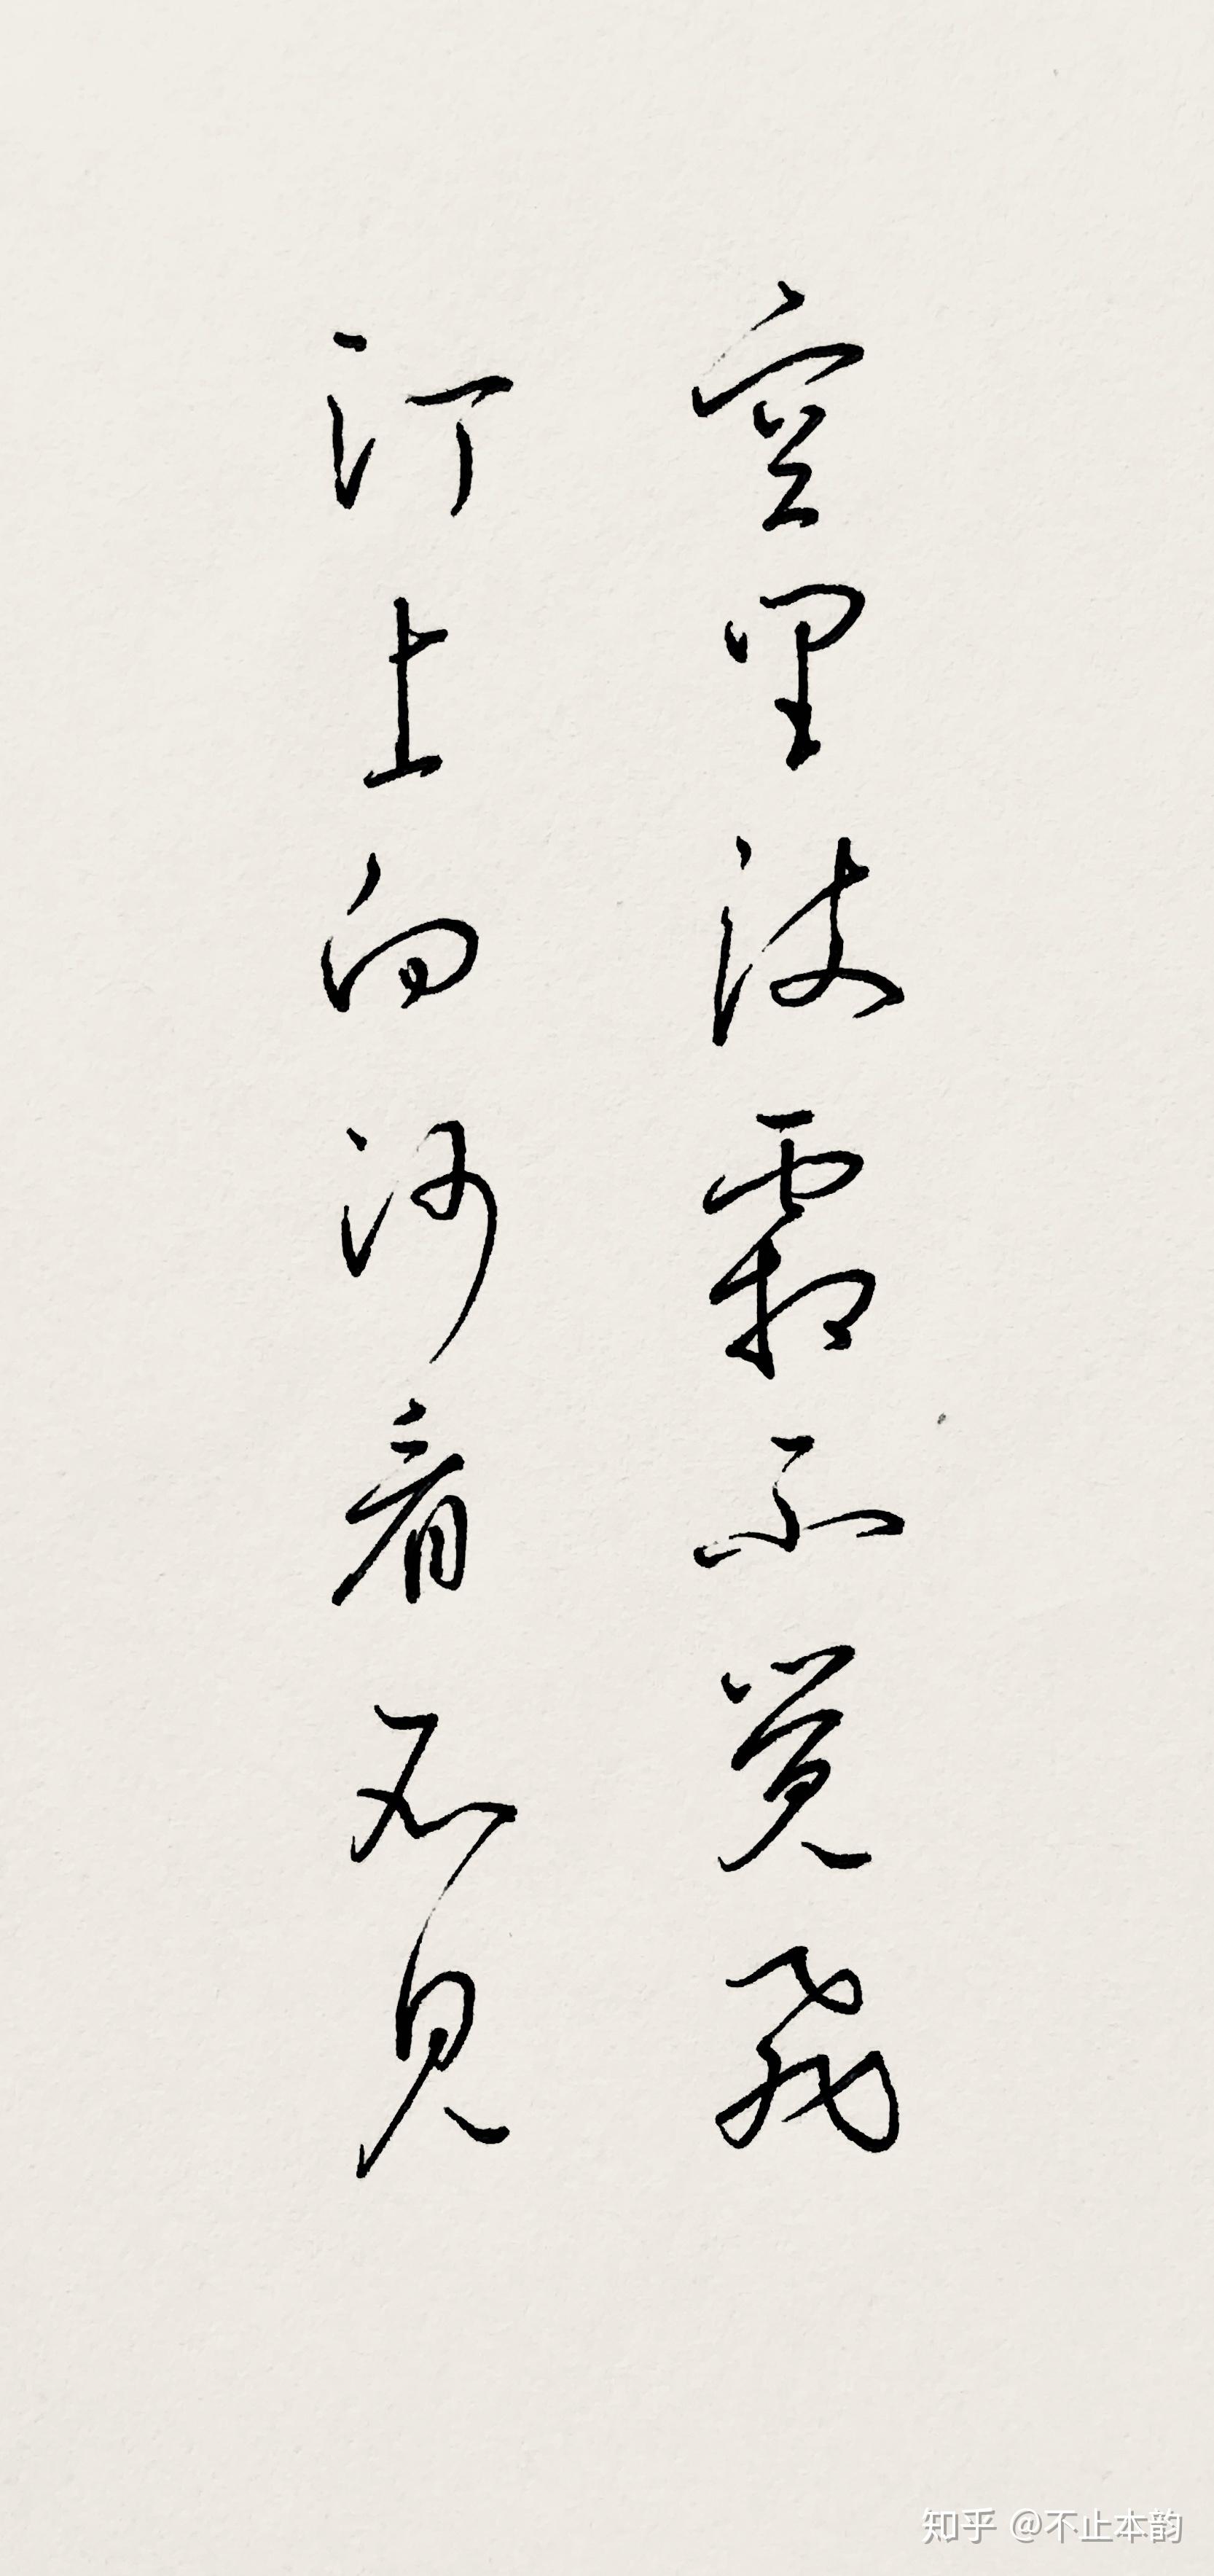 空里流霜不觉飛
汀上白沙看不見
知乎 @不止本韵